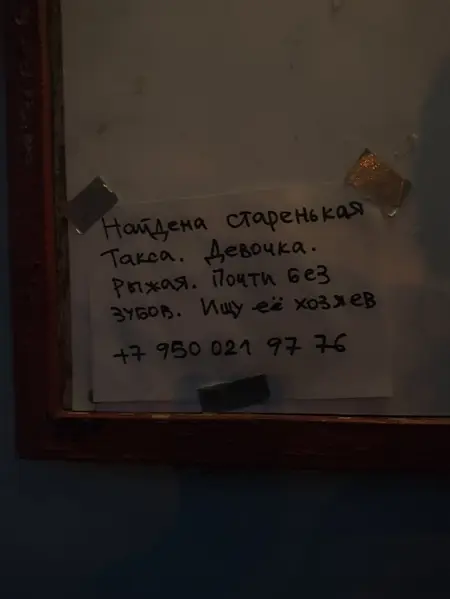 Найдена старенькая
Такса. Девочка.
Рыжая. Почти без
зубов. Ищу её хозяев
+7 950 021 97 76